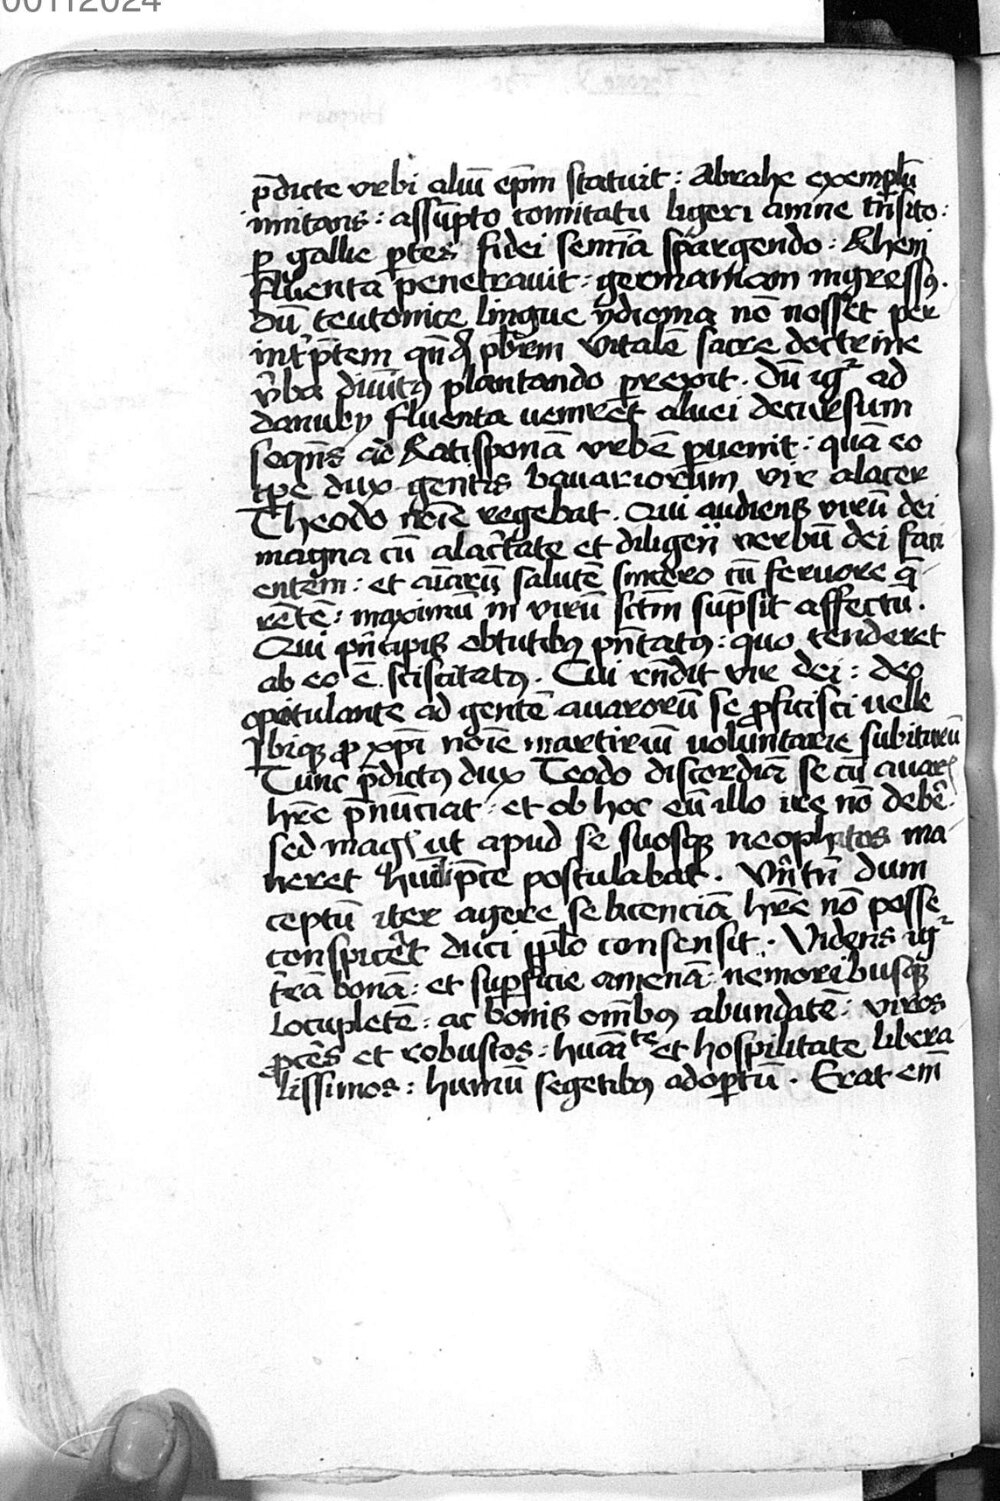 00112024
p̄dicte vrbi aliū ep̄m statuit : Abrahe exemplū
imitans : assūpto comitatu ligeri amne trāsito :
ꝑ gallie ꝑtes fidei semīa spargendo : Rheni
fluenta penetrauit : germaniam ingressꝰ .
dū teutonice lingue ydioma nō nosset per
int̄p̄tem qn̄dā pb̄rm vitalē sacre doctrine
v̄ba diuitꝰ plantando perexit . dū igr̄ ad
danubÿ fluenta venir̄et aluei decursum
seqn̄s ad Ratisponā vrbē ꝑuenit : quā eo
tp̄e dux gentis bauariorum vir alacer
Theodo noīe regebat . Qui audiens virū dei
magna cū alac̄tate et diligen̄ verbū dei faci
entem : et aīarū salutē sincero cū feruore q̄
rētē : maximū in virū sc̄tm sup̄sit affectū .
Qui pn̄cipis obtutibꝰ pn̄tatꝰ : quo tenderet
ab eo ē sciscitatꝰ . Cui rn̄dit vir dei : deo
opitulante ad gentē auarorū se ꝓficisci velle
Ibiqꝫ ꝓ xp̄i noīe martiriū voluntarie subiturū
Tunc p̄dictꝰ dux Teodo discordiā se cū auarꝭ
hr̄e p̄nūciat : et ob hoc eū illo ire nō debē .
sed magꝭ ut apud se suosqꝫ neophitos ma
neret postulabat . Vn̄ tn̄ dum
ceptū iter agere se licenciā hr̄e nō posse
conspic̄et duci ip̄lo consensit . Videns igr̄
t̄rā bonā : et suꝑficie amenā : nemoribusqꝫ
locupletē : ac bonis om̄ibꝰ abundātē : viros
ꝓcēs et robustos : huāīte et hospilitate libera
lissimos : humū segetibꝰ adoꝑtū . Erat em̄